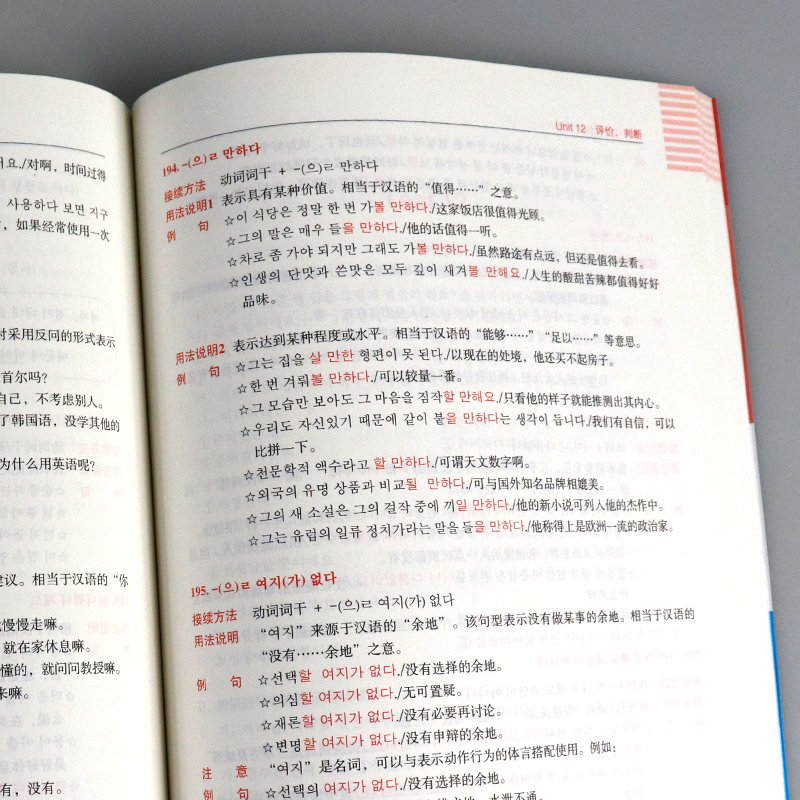 어요./对啊，时间过得
사용하다 보면 지구
，如果经常使用一次
时采用反问的形式表示
首尔吗？
自己，不考虑别人。
了韩国语，没学其他的
为什么用英语呢？
建议。相当于汉语的“你
慢慢走嘛。
就在家休息嘛。
懂的，就问问教授嘛。
来嘛。
有，没有。
Unit 12 评价、判断
194. -(으)ㄹ 만하다
接续方法 动词词干 + -(으)ㄹ 만하다
用法说明1 表示具有某种价值。相当于汉语的“值得……”之意。
例 句 ☆이 식당은 정말 한 번 가볼 만하다./这家饭店很值得光顾。
☆그의 말은 매우 들을 만하다./他的话值得一听。
☆차로 좀 가야 되지만 그래도 가볼 만하다./虽然路途有点远，但还是值得去看。
☆인생의 단맛과 쓴맛은 모두 깊이 새겨볼 만해요./人生的酸甜苦辣都值得好好
品味。
用法说明2 表示达到某种程度或水平。相当于汉语的“能够……”“足以……”等意思。
例 句 ☆그는 집을 살 만한 형편이 못 된다./以现在的处境，他还买不起房子。
☆한 번 겨뤄볼 만하다./可以较量一番。
☆그 모습만 보아도 그 마음을 짐작할 만해요./只看他的样子就能推测出其内心。
☆우리도 자신있기 때문에 같이 붙을 만하다는 생각이 듭니다./我们有自信，可以
比拼一下。
☆천문학적 액수라고 할 만하다./可谓天文数字啊。
☆외국의 유명 상품과 비교될 만하다./可与国外知名品牌相媲美。
☆그의 새 소설은 그의 걸작 중에 끼일 만하다./他的新小说可列入他的杰作中。
☆그는 유럽의 일류 정치가라는 말을 들을 만하다./他称得上是欧洲一流的政治家。
195. -(으)ㄹ 여지(가) 없다
接续方法 动词词干 + -(으)ㄹ 여지(가) 없다
用法说明 “여지”来源于汉语的“余地”。该句型表示没有做某事的余地。相当于汉语的
“没有……余地”之意。
例 句 ☆선택할 여지가 없다./没有选择的余地。
☆의심할 여지가 없다./无可置疑。
☆재론할 여지가 없다./没有必要再讨论。
☆변명할 여지가 없다./没有申辩的余地。
注 意 “여지”是名词，可以与表示动作行为的体言搭配使用。例如：
例 句 ☆선택의 여지가 없다./没有选择的余地。
水泄不通。